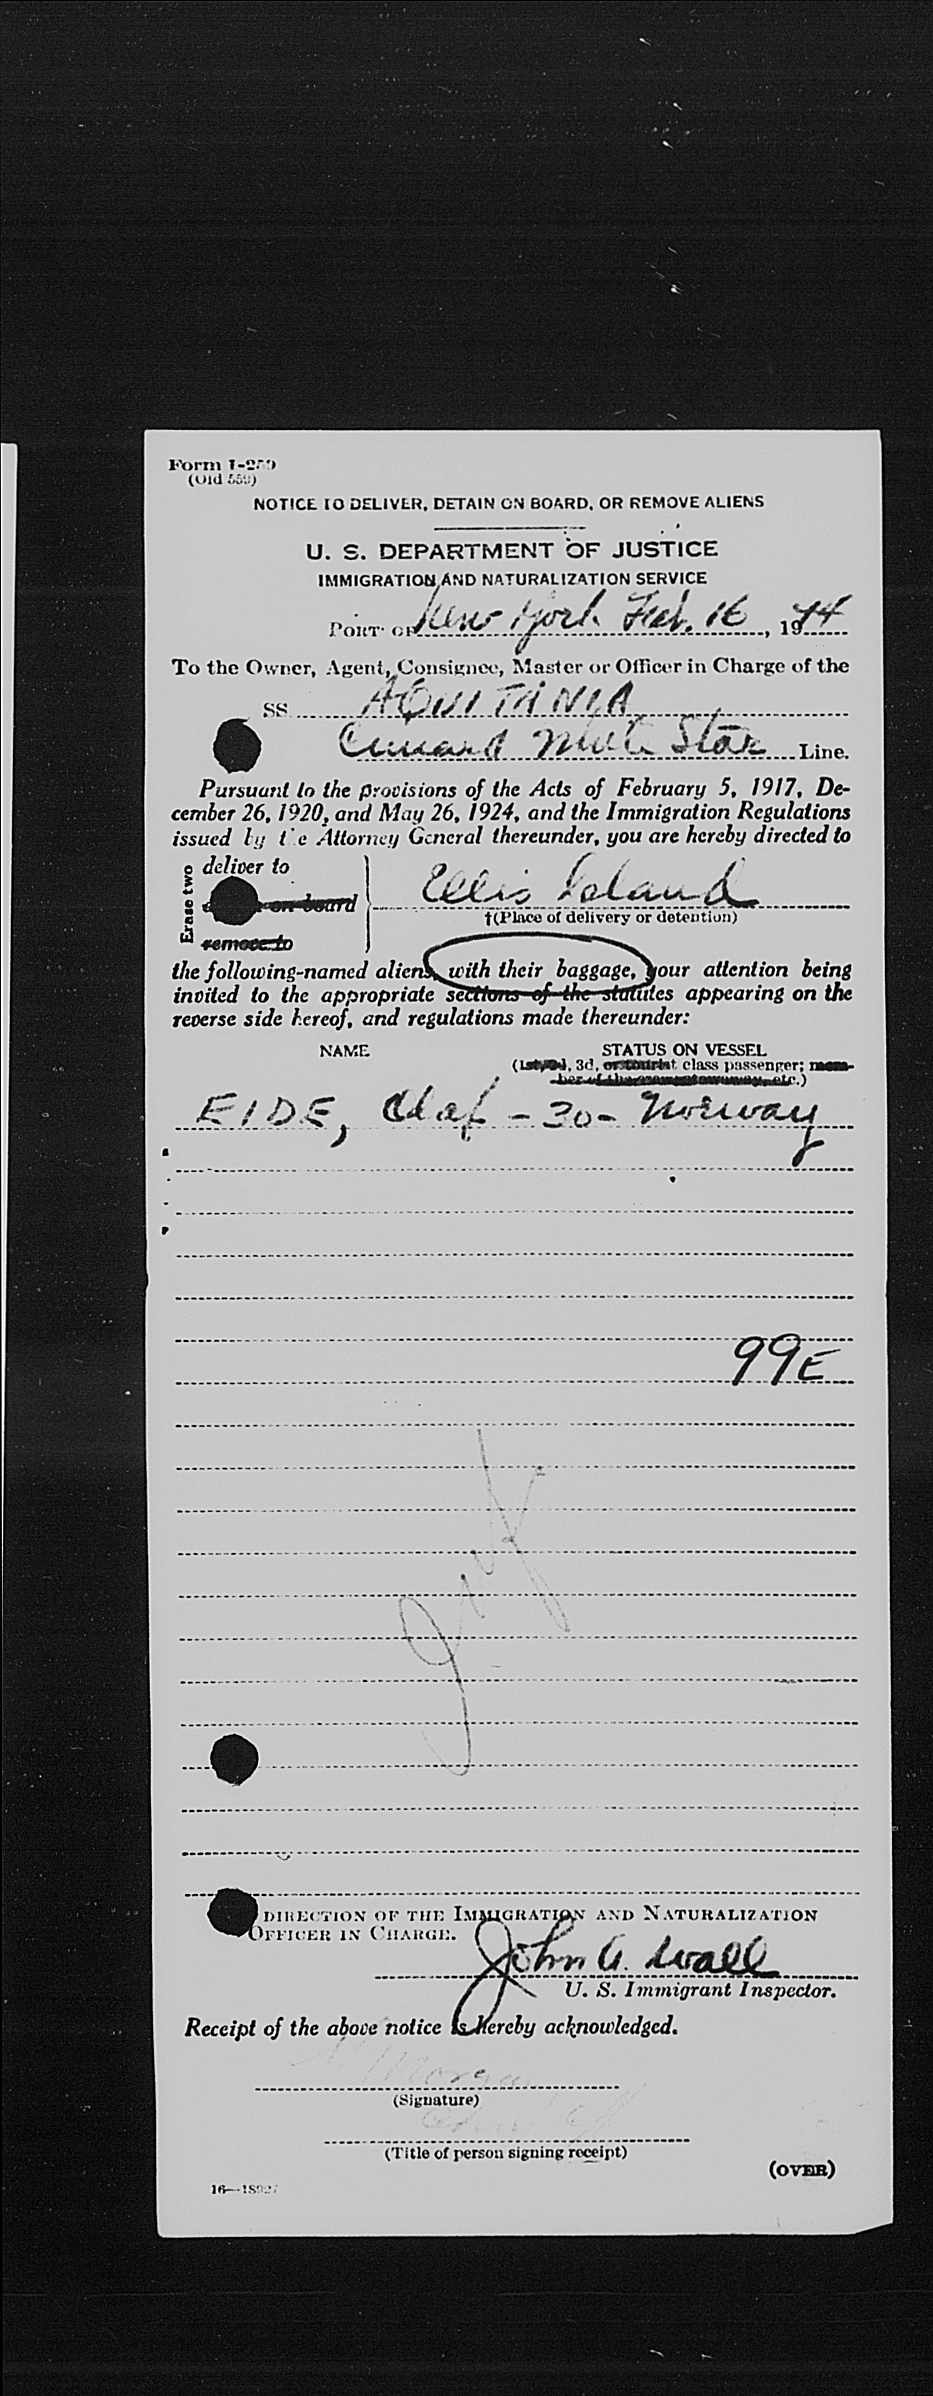 Form I-259
(Old 559)
NOTICE TO DELIVER, DETAIN ON BOARD, OR REMOVE ALIENS
U. S. DEPARTMENT OF JUSTICE
IMMIGRATION AND NATURALIZATION SERVICE
PORT OF New York Feb. 16, 1944
To the Owner, Agent, Consignee, Master or Officer in Charge of the
SS AQUITANIA
Cunard White Star Line.
Pursuant to the provisions of the Acts of February 5, 1917, De-
cember 26, 1920, and May 26, 1924, and the Immigration Regulations
issued by the Attorney General thereunder, you are hereby directed to
Erase two
deliver to
on board
remove to
Ellis Island
†(Place of delivery or detention)
the following-named aliens, with their baggage, your attention being
invited to the appropriate sections of the statutes appearing on the
reverse side hereof, and regulations made thereunder:
NAME STATUS ON VESSEL
(1st, 2d, 3d, or tourist class passenger; mem-
ber of the etc.)
EIDE, Olaf - 30 - Norway
99E
DIRECTION OF THE IMMIGRATION AND NATURALIZATION
OFFICER IN CHARGE.
John A. Wall
U. S. Immigrant Inspector.
Receipt of the above notice is hereby acknowledged.
Morgan
(Signature)
(Title of person signing receipt)
(OVER)
16—18927